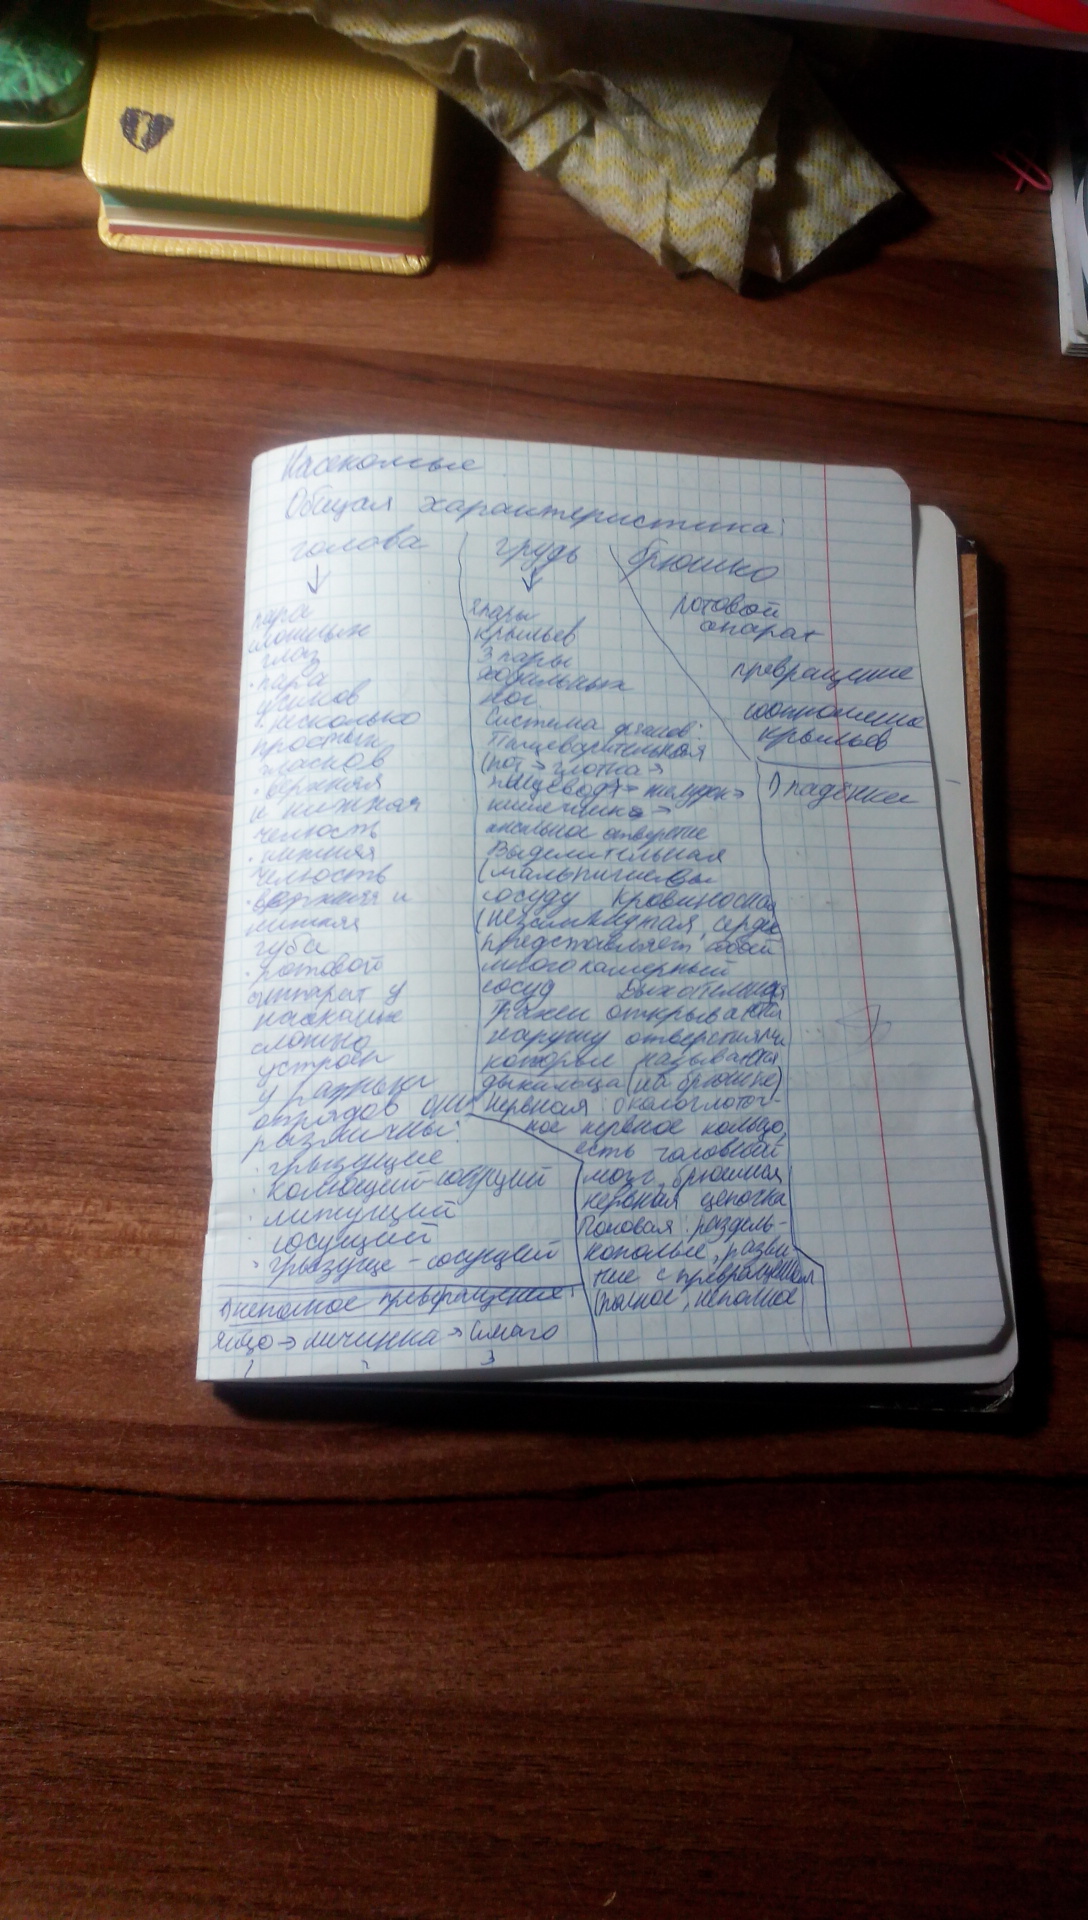 Насекомые
Общая характеристика:
голова
пара
сложных
глаз
· пара
усиков
· несколько
простых
глазков
· верхняя
и нижняя
челюсть
· нижняя
челюсть
· верхняя и
нижняя
губа
· ротовой
аппарат у
сложно
устроен
у разных
отрядов они
различны:
· грызущие
· колющий-сосущий
· лижущий
· сосущий
· грызуще-сосущий
1) неполное превращение:
яйцо → личинка → имаго
1 2 3
грудь
2 пары
крыльев
3 пары
ходильных
ног
Система органов:
Пищеварительная
(рот → глотка →
пищевод → желудок →
кишечник →
анальное отверстие
Выделительная
(мальпигиевы
сосуду Кровиносная
(незамкнутая, сердце
представляет собой
многокамерный
сосуд Дыхательная
Трахеи открываются
наружу отверстиями
которые называются
дыхальца (на брюшке)
Нервная: окологлоточ-
ное нервное кольцо,
есть головной
мозг, брюшная
нервная цепочка
Половая: раздель-
нополые, разви-
тие с превращением
(полное, неполное
брюшко
ротовой
апарат
превращение
крыльев
1) падёнки